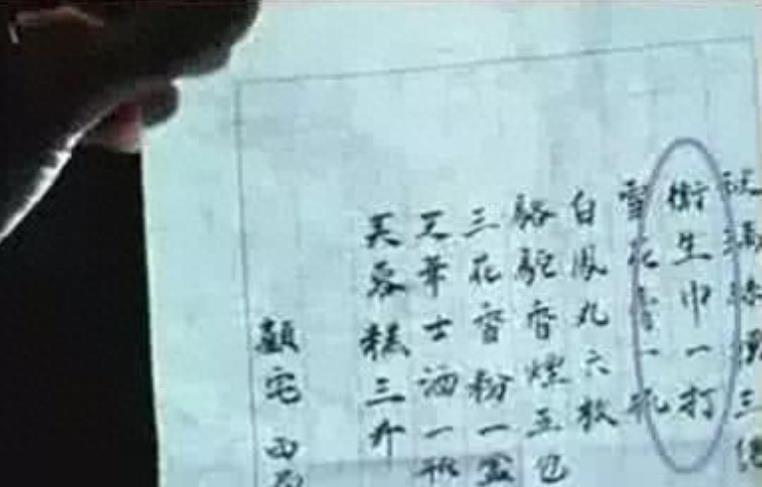 衛生巾一打
雪花膏一瓶
白鳳丸六枚
駱駝香煙五包
三花香粉一盒
天華士酒一瓶
芙蓉糕三斤
顧宅